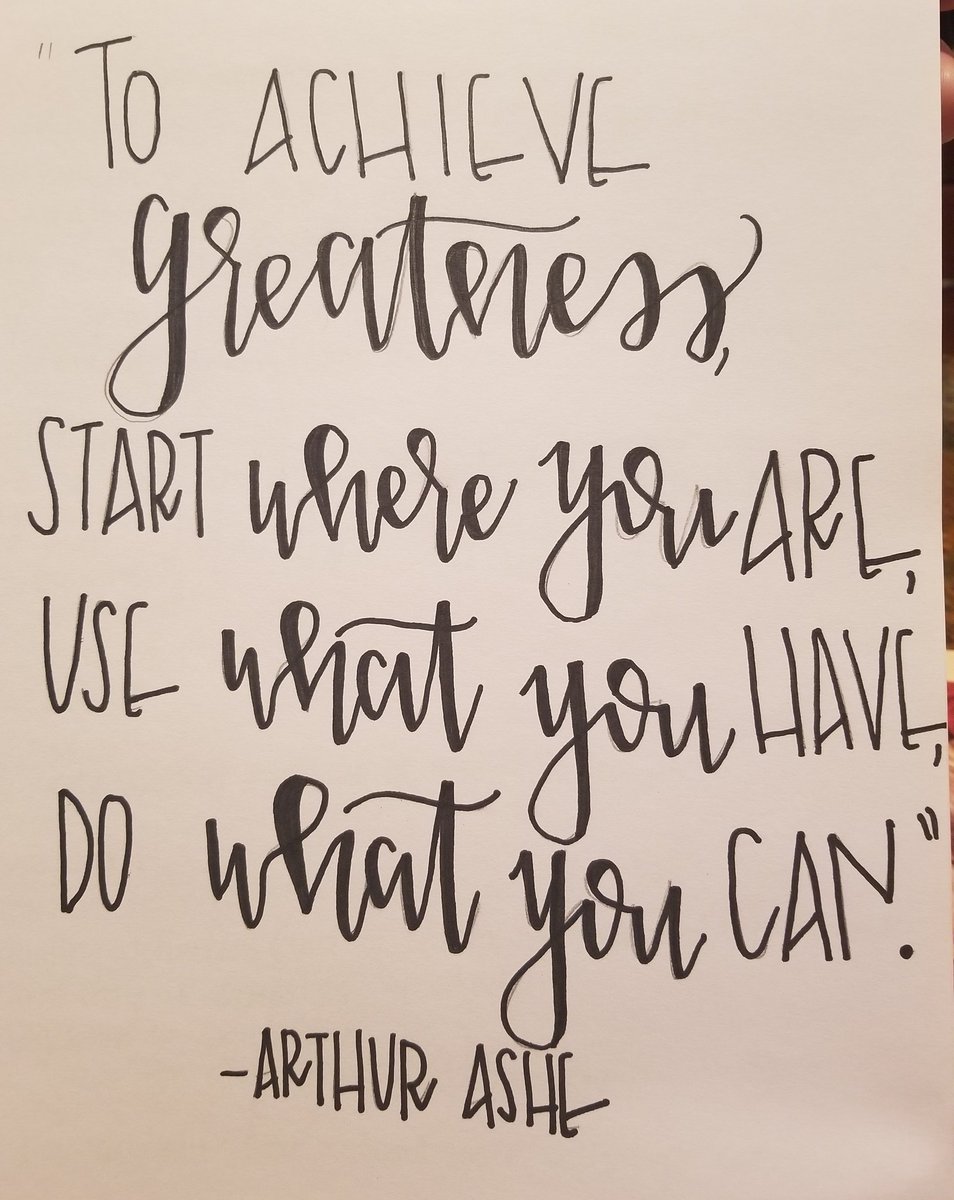 "TO ACHIEVE
greatness,
START where you ARE,
USE what you HAVE,
DO what you CAN."
-ARTHUR ASHE